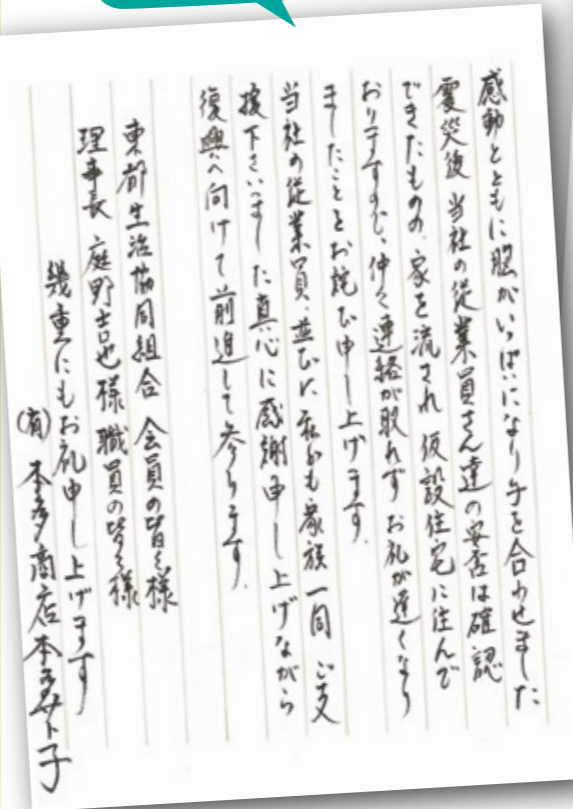 感動とともに胸がいっぱいになり手を合わせました
震災後 当社の従業員さん達の安否は確認
できたものの、家を流され 仮設住宅に住んで
おりますので、仲々連絡が取れず お礼が遅くなり
ましたことをお詫び申し上げます。
当社の従業員、並びに私ども家族一同 ご支
援下さいました真心に感謝申し上げながら
復興へ向けて前進して参ります。
東都生活協同組合 会員の皆々様
理事長 庭野吉也様 職員の皆々様
幾重にもお礼申し上げます
(有) 本多商店 本多サト子